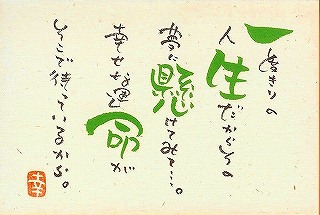 一度きりの
人生だからその
夢に懸けてみて…。
幸せな運命が
そこで待っているから。
幸